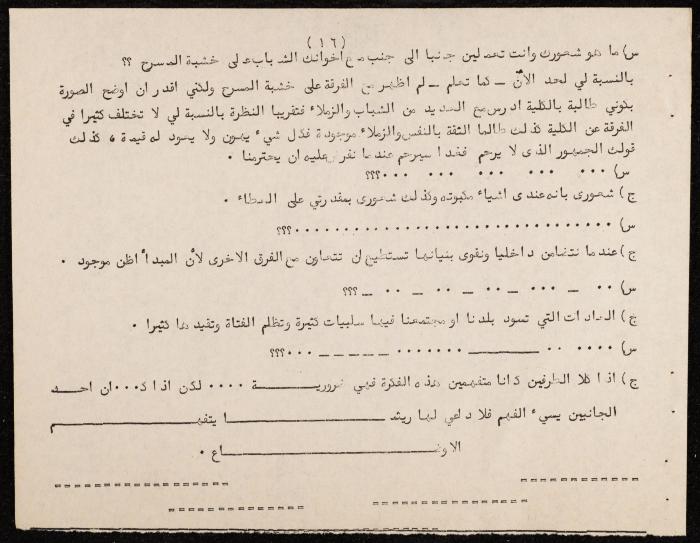 (١٦)
س) ما هو شعورك وانت تعملين جنبا الى جنب مع اخوانك الشباب على خشبة المسرح ؟؟
بالنسبة لي لحد الآن ـ كما تعلم ـ لم اظهر مع الفرقة على خشبة المسرح ولكني اقدر ان اوضح الصورة
بكوني طالبة بالكلية ادرس مع العديد من الشباب والزملاء فتقريبا النظرة بالنسبة لي لا تختلف كثيرا في
الفرقة عن الكلية كذلك طالما الثقة بالنفس والزملاء موجودة فكل شيء يهون ولا يعود له قيمة ، كذلك
قولك الجمهور الذى لا يرحم فغدا سيرحم عندما نفرض عليه ان يحترمنا .
س) ... ... ... ... ... ...؟؟؟
ج) شعورى بانه عندى اشياء مكبوته وكذلك شعورى بمقدرتي على العطاء .
س) ................................؟؟؟
ج) عندما نتضامن داخليا ونقوى بنيانها تستطيع ان تتعاون مع الفرق الاخرى لأن المبدأ اظن موجود .
س) .. ـ ... ـ .. ـ .. ـ .. ـ ؟؟؟
ج) العادات التي تسود بلدنا او مجتمعنا فيها سلبيات كثيرة وتظلم الفتاة وتقيدها كثيرا .
س) .... .. ـــــــــ ....... ـ ـ ـ ـ ـ ...؟؟؟
ج) اذا كلا الطرفين كانا متفهمين هذه الفكرة فهي ضروريـــــــة .... لكن اذا كـ...ان احـــد
الجانبين يسيء الفهم فلا داعي لها ريثمـــــــــــــــا يتفهـــــــــــــــم
الاوضـــــــــــــــــــــاع .